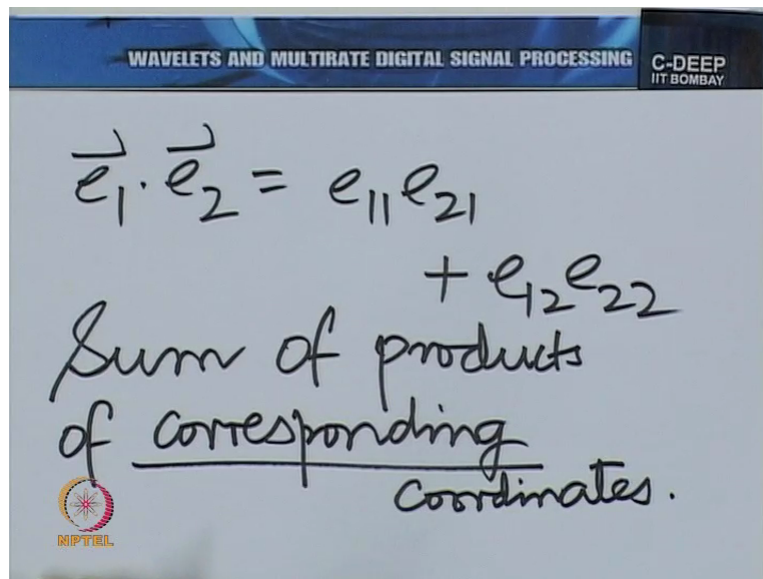 WAVELETS AND MULTIRATE DIGITAL SIGNAL PROCESSING
C-DEEP
IIT BOMBAY
e⃗₁ · e⃗₂ = e₁₁e₂₁
+ e₁₂e₂₂
Sum of products
of corresponding
coordinates.
NPTEL